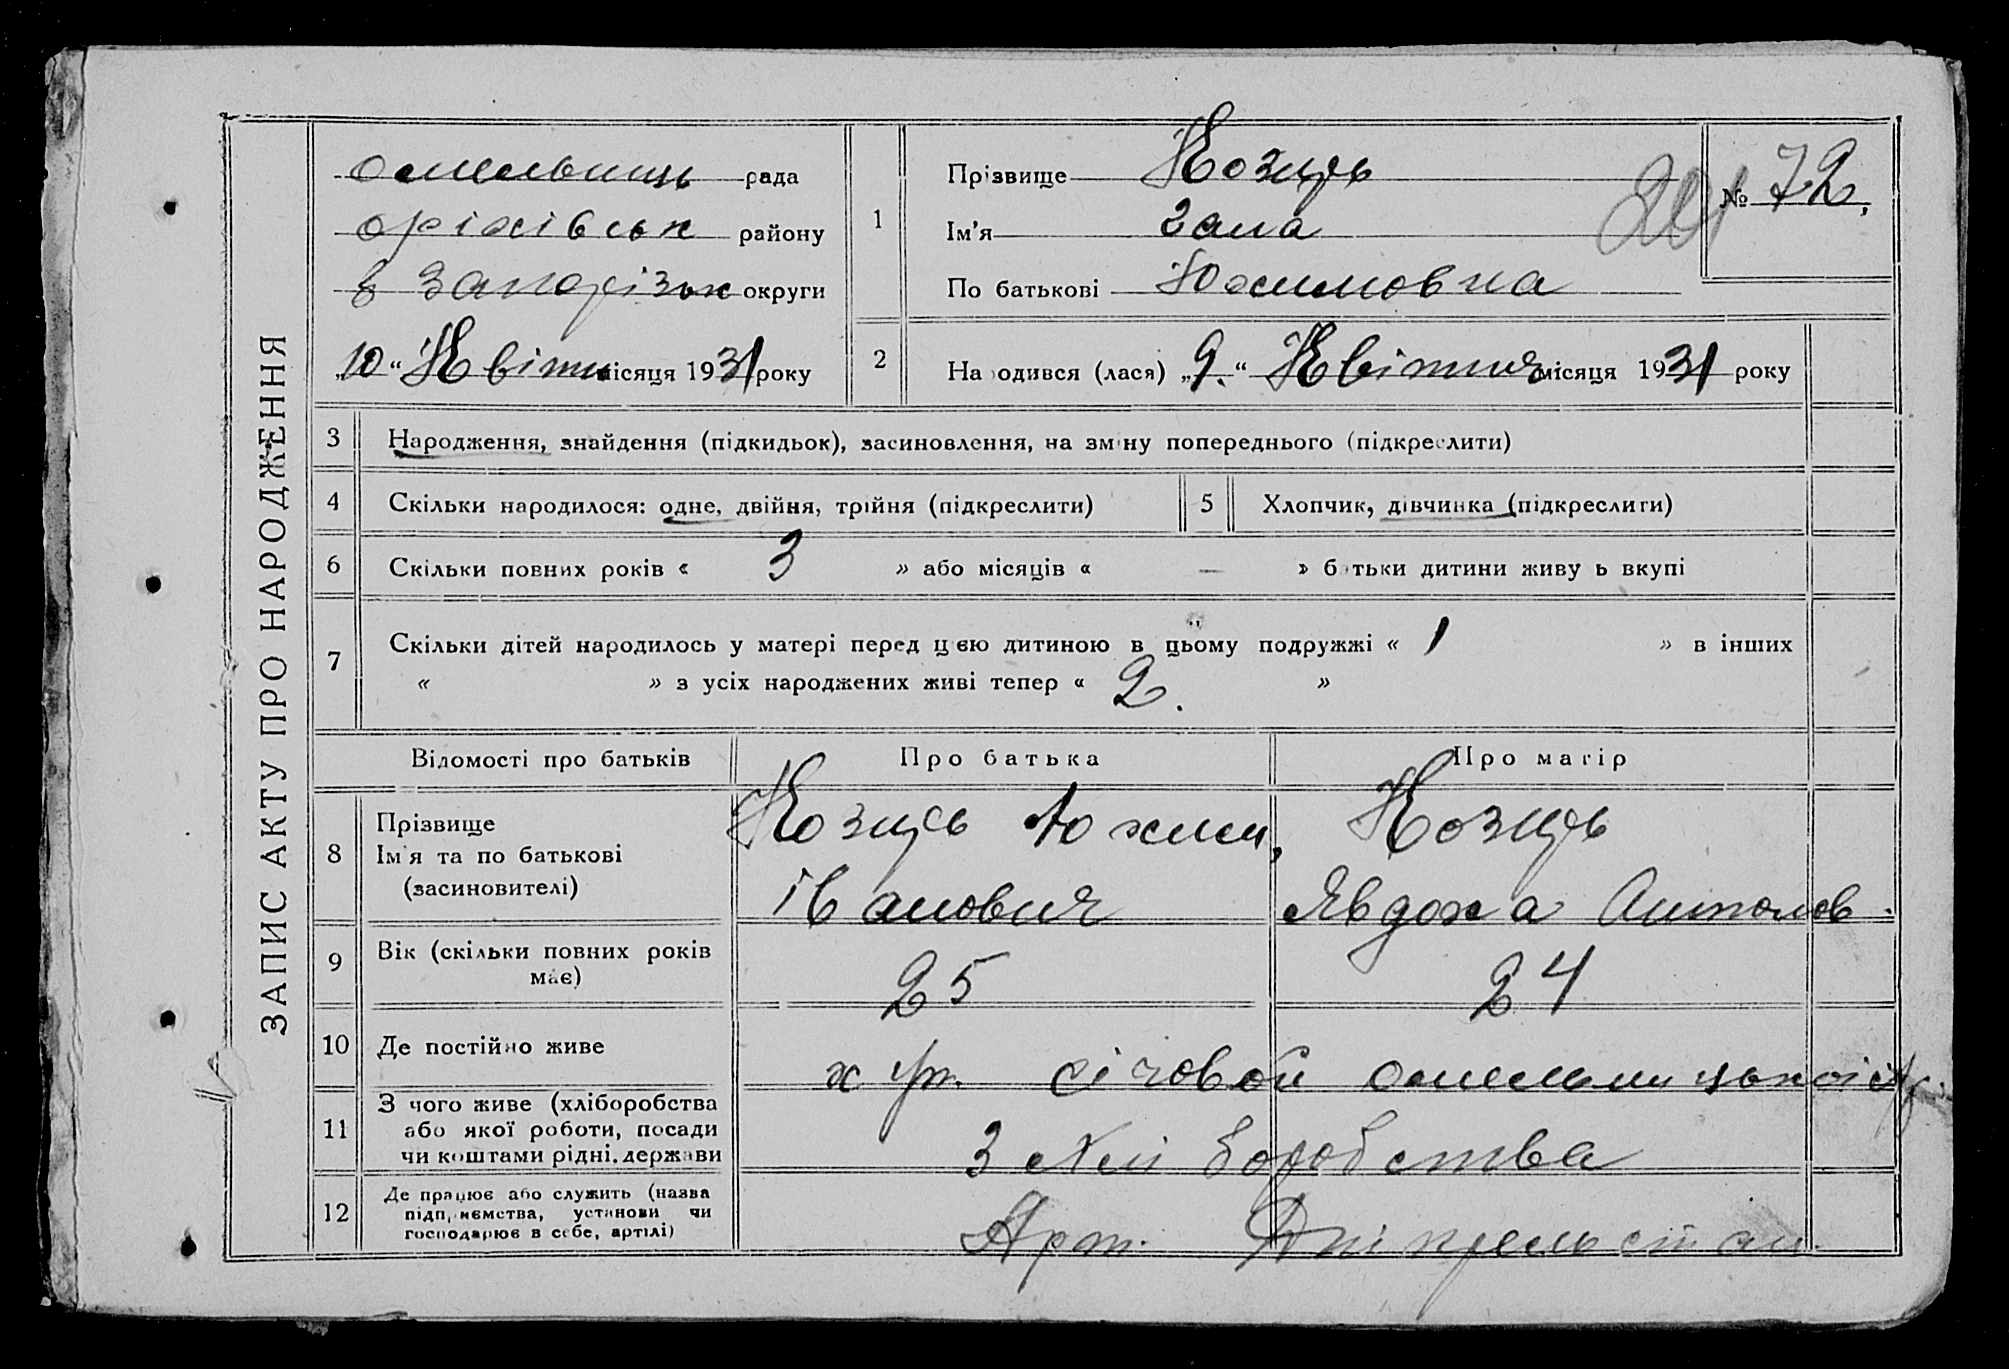 ЗАПИС АКТУ ПРО НАРОДЖЕННЯ
омельниць рада
оріхівськ району
в Запорізьк округи
„10“ Квітня місяця 1931 року
1
Прізвище Козиць
Ім'я Зала
По батькові Юхимовна
№ 72,
201
2
Народився (лася) „9.“ Квітня місяця 1931 року
3 Народження, знайдення (підкидьок), засиновлення, на зміну попереднього (підкреслити)
4 Скільки народилося: одне, двійня, трійня (підкреслити)
5 Хлопчик, дівчинка (підкреслити)
6 Скільки повних років « 3 » або місяців « — » батьки дитини живуть вкупі
7 Скільки дітей народилось у матері перед цією дитиною в цьому подружжі « 1 » в інших
« » з усіх народжених живі тепер « 2. »
Відомості про батьків Про батька Про матір
8 Прізвище
Ім'я та по батькові
(засиновителі)
Козиць Юхим,
Іванович
Козиць
Явдоха Антонов.
9 Вік (скільки повних років
має)
25 24
10 Де постійно живе
хут. січовой омельницької с/р.
11 З чого живе (хліборобства
або якої роботи, посади
чи коштами рідні, держави
З хліборобства
12 Де працює або служить (назва
підприємства, установи чи
господарює в себе, артілі)
Арт. Дніпрельстан